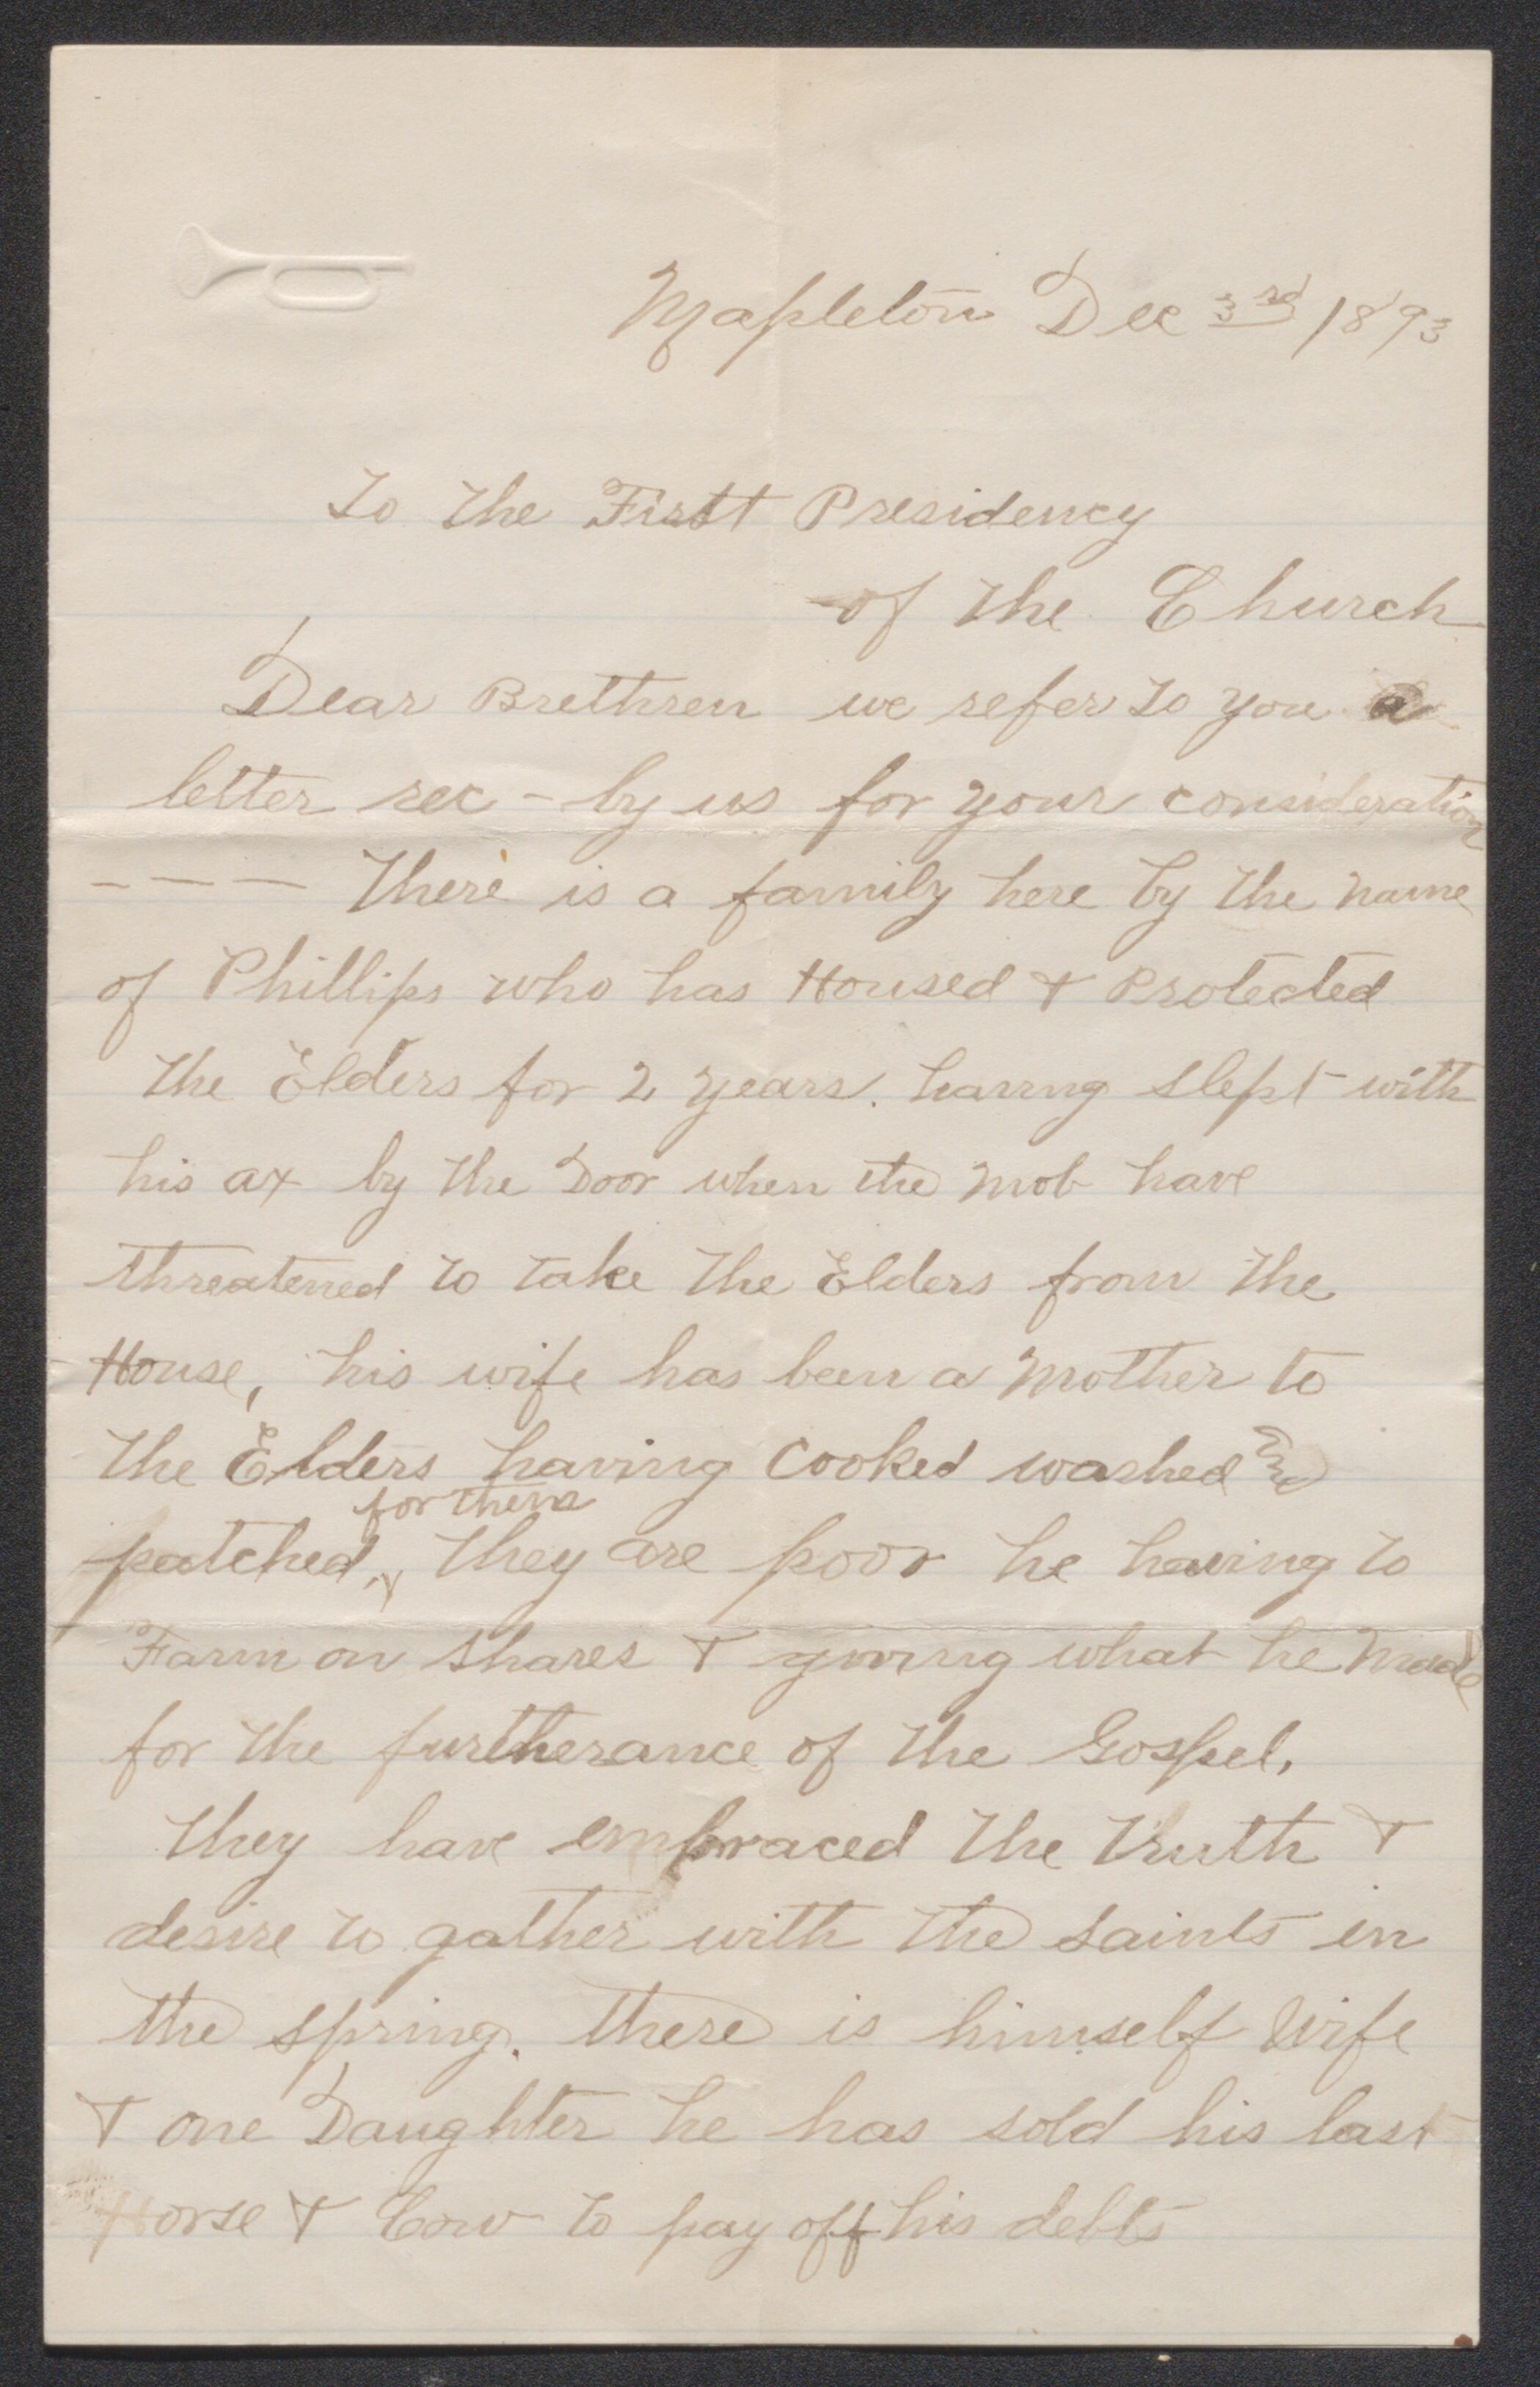 Mapleton Dec 3rd 1893
To the First Presidency
of the Church
Dear Brethren we refer to you a
letter rec - by us for your consideration
--- There is a family here by the name
of Phillips who has Housed & Protected
the Elders for 2 years. having slept with
his ax by the Door when the mob have
threatened to take the Elders from the
House, his wife has been a Mother to
the Elders having Cooked washed &
for them
patched, they are poor he having to
Farm on shares & giving what he made
for the furtherance of the Gospel,
They have embraced the Truth &
desire to gather with the saints in
the spring. there is himself Wife
& one Daughter he has sold his last
Horse & Cow to pay off his debts